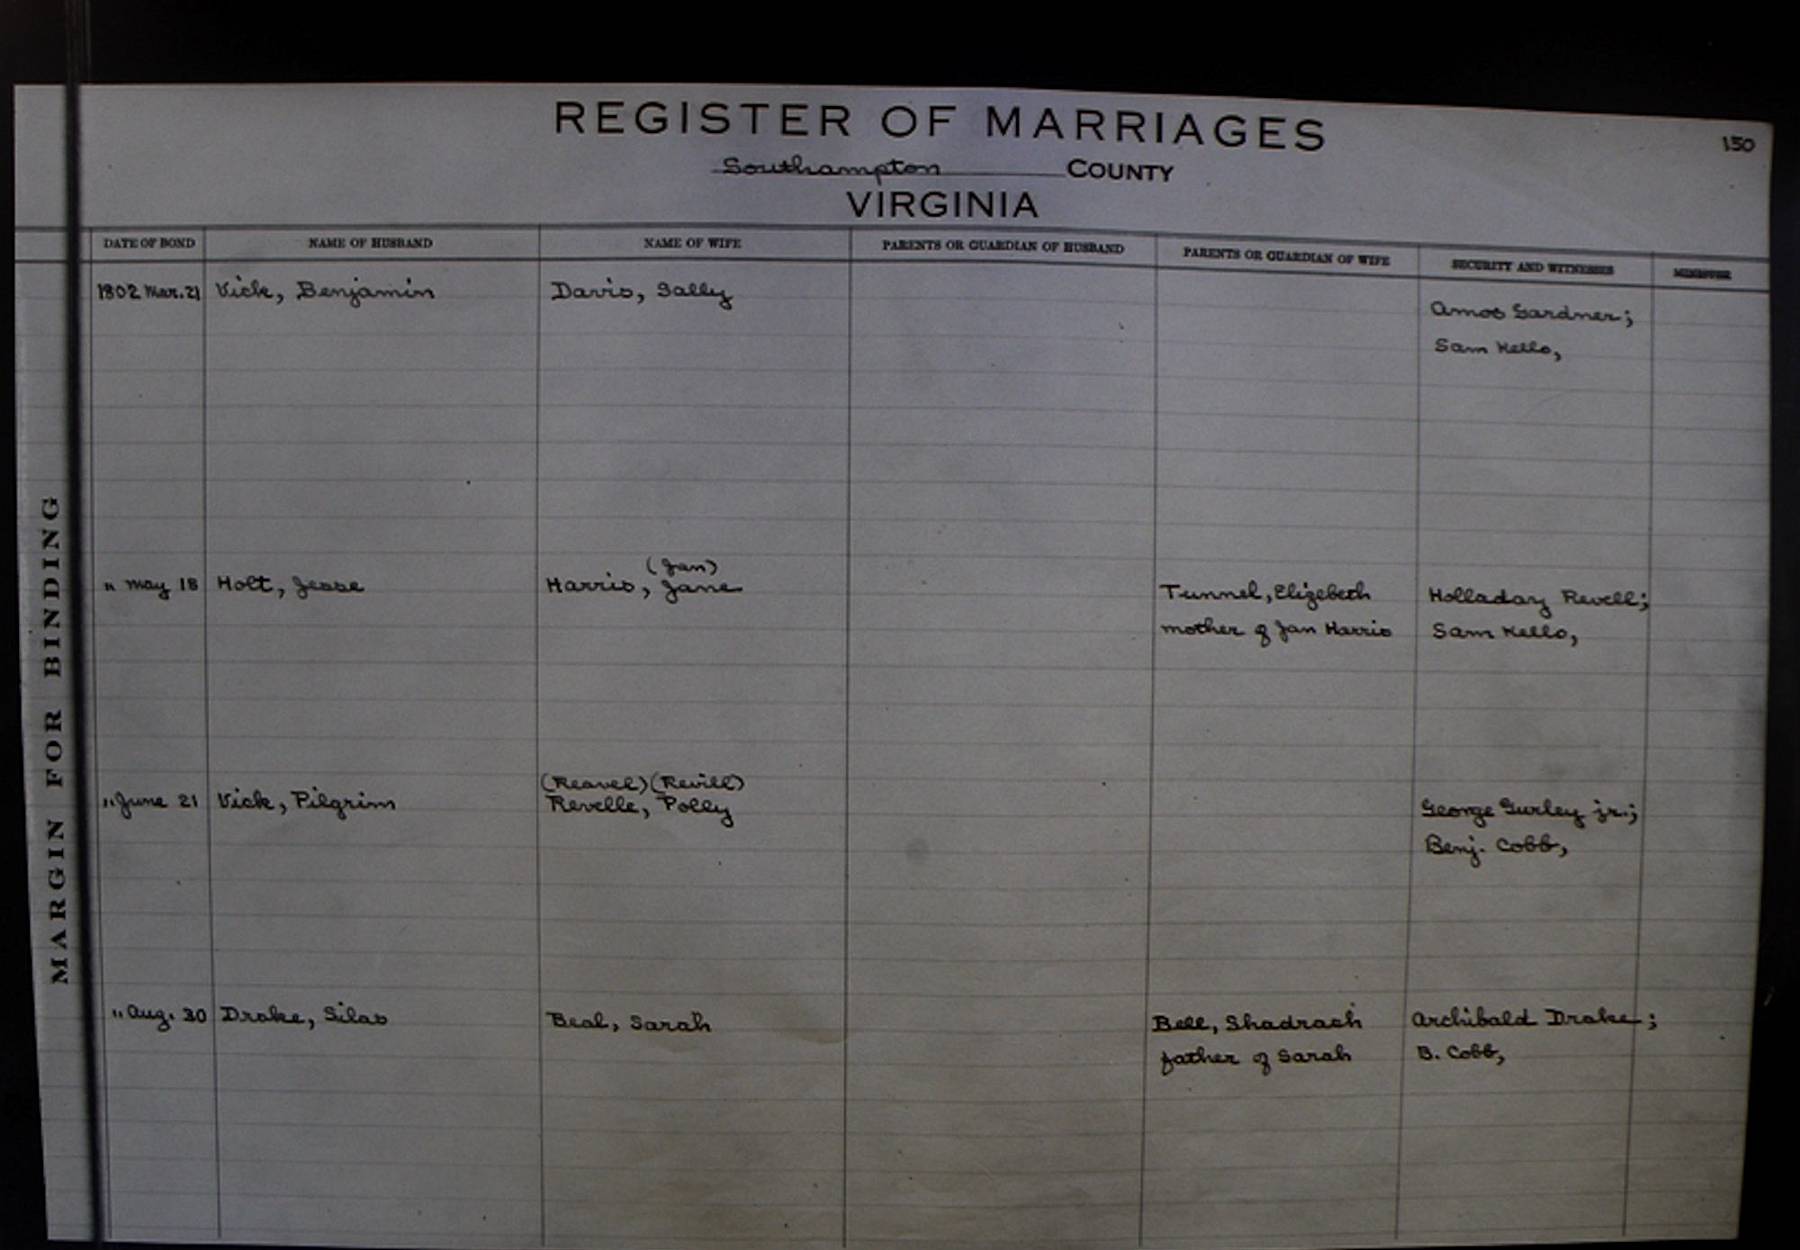 REGISTER OF MARRIAGES
150
Southampton COUNTY
VIRGINIA
DATE OF BOND NAME OF HUSBAND NAME OF WIFE PARENTS OR GUARDIAN OF HUSBAND PARENTS OR GUARDIAN OF WIFE SECURITY AND WITNESSES MINISTER
1802 Mar. 21 Vick, Benjamin Davis, Sally
Amos Gardner;
Sam Kello,
(Jan)
" May 18 Holt, Jesse Harris, Jane Tunnel, Elizebeth Holladay Revell;
mother of Jan Harris Sam Kello,
(Reavel) (Revill)
" June 21 Vick, Pilgrim Revelle, Polly George Gurley jr.;
Benj. Cobb,
" Aug. 30 Drake, Silas Beal, Sarah Bell, Shadrach Archibald Drake;
father of Sarah B. Cobb,
MARGIN FOR BINDING